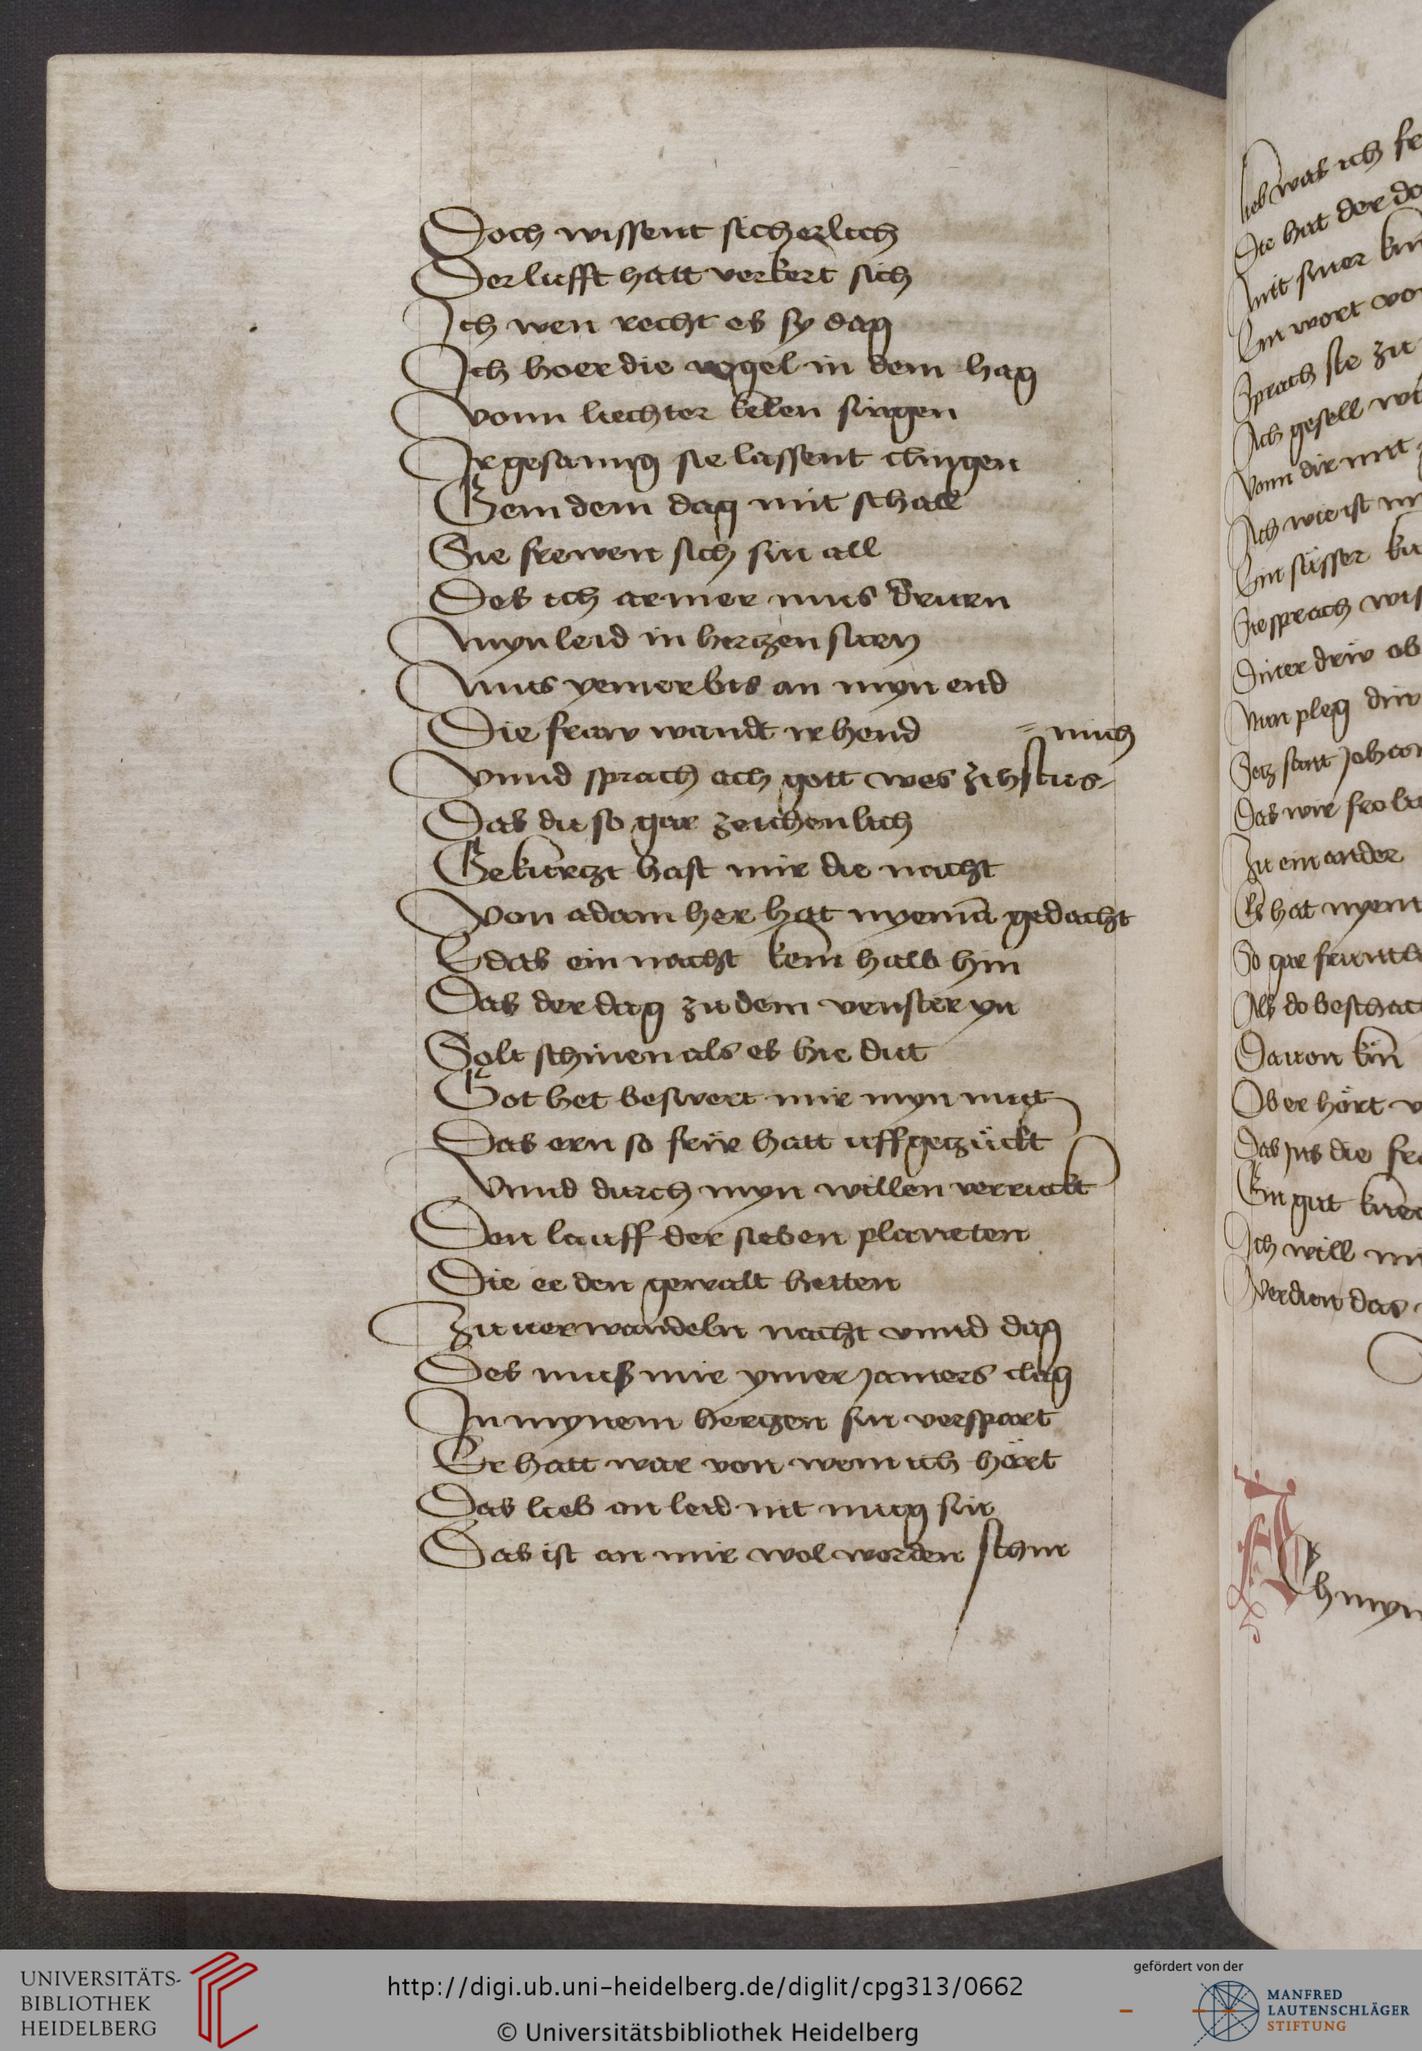 Doch wissent sicherlich
Der lufft hatt verkert sich
Ich wen recht es sy dag
Ich hoer die vogel in dem hag
Vonn liechter kelen singen
Ir gesanng sie lassent clingen
Gem dem dag mit schall
Sie frewen sich sin all
Des ich armer mus drurn
Myn leid in hertzen surn
Mus yemer bis an myn end
Die fraw wandt ir hend
Vnnd sprach ach gott wes zihstus- = mich
Das du so gar zeichenlich
Gekurtzt hast mir die nacht
Von adam her hat nyema͞ gedacht
E das ein nacht kem halb hin
Das der dag zu dem venster yn
Solt schinen als es hie dut
Got het beswert mir myn mut
Das ern so frür hatt uffgezückt
Vnnd durch myn willen verruckt
Den lauff der sieben planeten
Die ee den gewalt hetten
Zu uerwandeln nacht vnnd dag
Des muß mir ymer jamers clag
In mynem hertzen sin verspart
Er hatt war von wem ich hört
Das lieb on leid nit mug sin
Das ist an mir wol worden schin
lieb was ich
Die hat der
mit siner
Ein wort
Sprach sie zu
Ach gesell
Vonn dir mit
Ach wie ist
Ein süsser
Sie sprach
Diner
Man pleg
Setz sant Johan
Das wir fro
Zu einander
Er hat nyem
So gar
Als do beschach
Dauon kün
Aber hört
Das Jns die
Ein gut
Ich will
Verdien das
Ich myn
UNIVERSITÄTS-
BIBLIOTHEK
HEIDELBERG
http://digi.ub.uni-heidelberg.de/diglit/cpg313/0662
© Universitätsbibliothek Heidelberg
gefördert von der
MANFRED
LAUTENSCHLÄGER
STIFTUNG